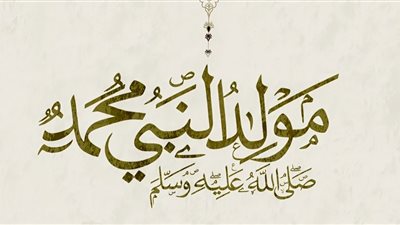 مَولِدُ النَّبِيِّ مُحَمَّد
صَلَّى اللَّهُ عَلَيْهِ وَسَلَّمَ